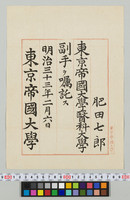 肥田七郎
東京帝國大學醫科大學
副手ヲ囑託ス
明治三十三年二月六日
東京帝國大學